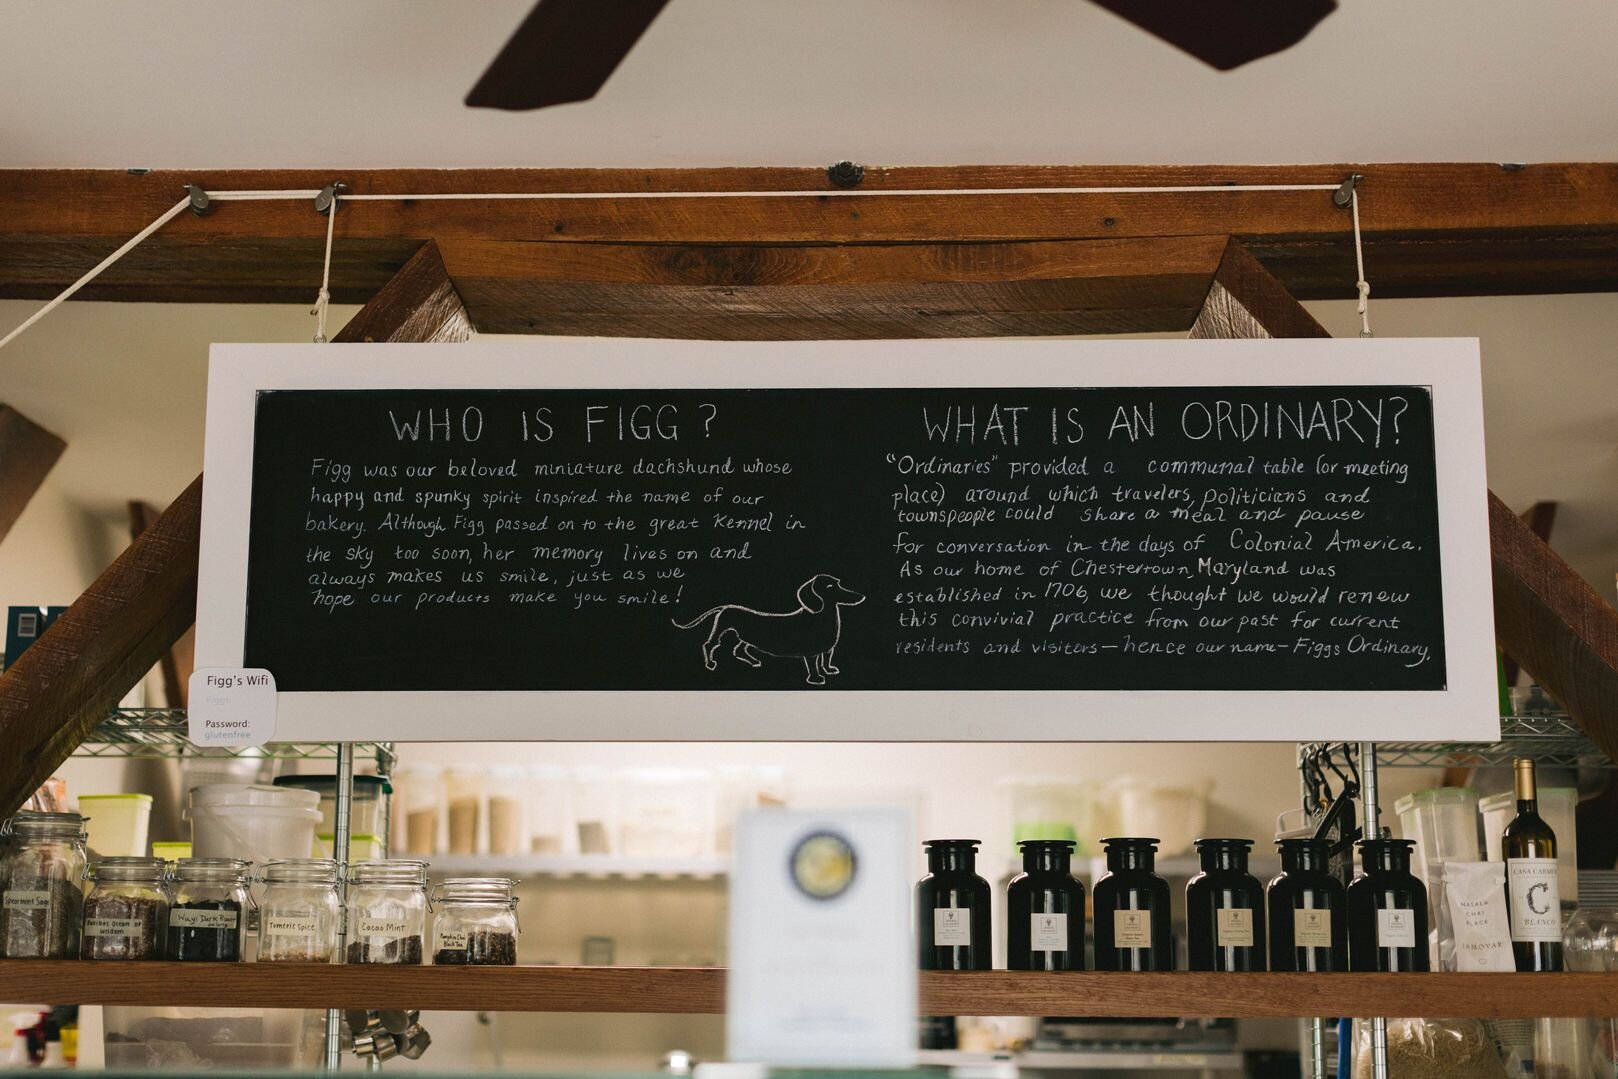 WHO IS FIGG?
Figg was our beloved miniature dachshund whose
happy and spunky spirit inspired the name of our
bakery. Although Figg passed on to the great Kennel in
the sky too soon, her memory lives on and
always makes us smile, just as we
hope our products make you smile!
WHAT IS AN ORDINARY?
"Ordinaries" provided a communal table (or meeting
place) around which travelers, politicians and
townspeople could share a meal and pause
for conversation in the days of Colonial America.
As our home of Chestertown, Maryland was
established in 1706, we thought we would renew
this convivial practice from our past for current
residents and visitors — hence our name — Figgs Ordinary.
Figg's Wifi
Figgs
Password:
glutenfree
Spearmint Sage
Wuyi Dark Roast
oolong
Tumeric Spice
Cacao Mint
Pumpkin Chai
Black Tea
MASALA
CHAI
BLACK
SAMOVAR
CASA CARMELA
C
BLANCO